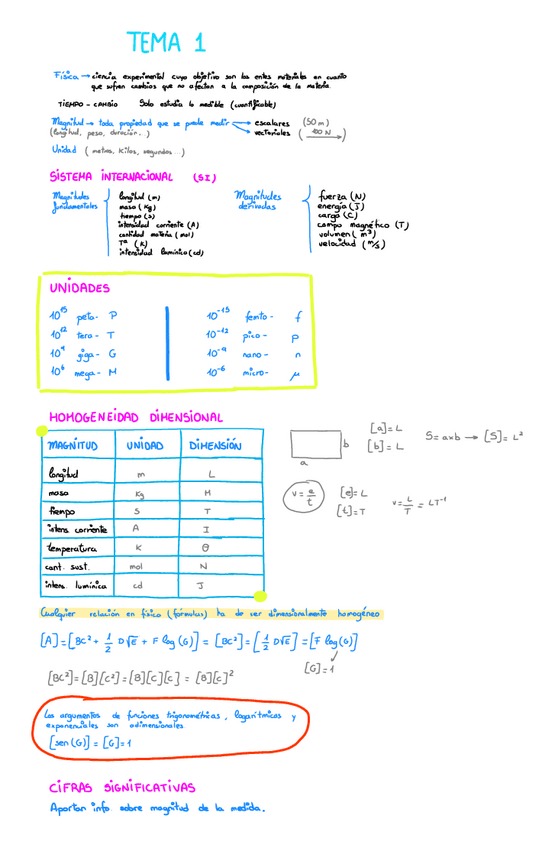 TEMA 1
Física → ciencia experimental cuyo objetivo son los entes materiales en cuanto
que sufren cambios que no afectan a la composición de la materia.
TIEMPO - CAMBIO Solo estudia lo medible (cuantificable)
Magnitud → toda propiedad que se puede medir → escalares (50 m)
(longitud, peso, duración...) → vectoriales (100 N)
Unidad (metros, kilos, segundos...)
SISTEMA INTERNACIONAL (SI)
Magnitudes fundamentales
longitud (m)
masa (Kg)
tiempo (s)
intensidad corriente (A)
cantidad materia (mol)
Tª (K)
intensidad lumínica (cd)
Magnitudes derivadas
fuerza (N)
energía (J)
carga (C)
campo magnético (T)
volumen (m³)
velocidad (m/s)
UNIDADES
10¹⁵ peta- P 10⁻¹⁵ femto- f
10¹² tera- T 10⁻¹² pico- p
10⁹ giga- G 10⁻⁹ nano- n
10⁶ mega- M 10⁻⁶ micro- μ
HOMOGENEIDAD DIMENSIONAL
MAGNITUD UNIDAD DIMENSIÓN
longitud m L
masa Kg M
tiempo S T
intens corriente A I
temperatura K Θ
cant. sust. mol N
intens. lumínica cd J
a
b
[a]=L
[b]=L
S=axb → [S]=L²
v=e/t
[e]=L
[t]=T
v=L/T=LT⁻¹
Cualquier relación en física (fórmulas) ha de ser dimensionalmente homogéneo
[A]=[BC²+ 1/2 D√E + F log(G)]=[BC²]=[1/2 D√E]=[F log(G)]
[G]=1
[BC²]=[B][C²]=[B][C][C]=[B][C]²
Los argumentos de funciones trigonométricas, logarítmicas y
exponenciales son adimensionales
[sen(G)]=[G]=1
CIFRAS SIGNIFICATIVAS
Aportan info sobre magnitud de la medida.